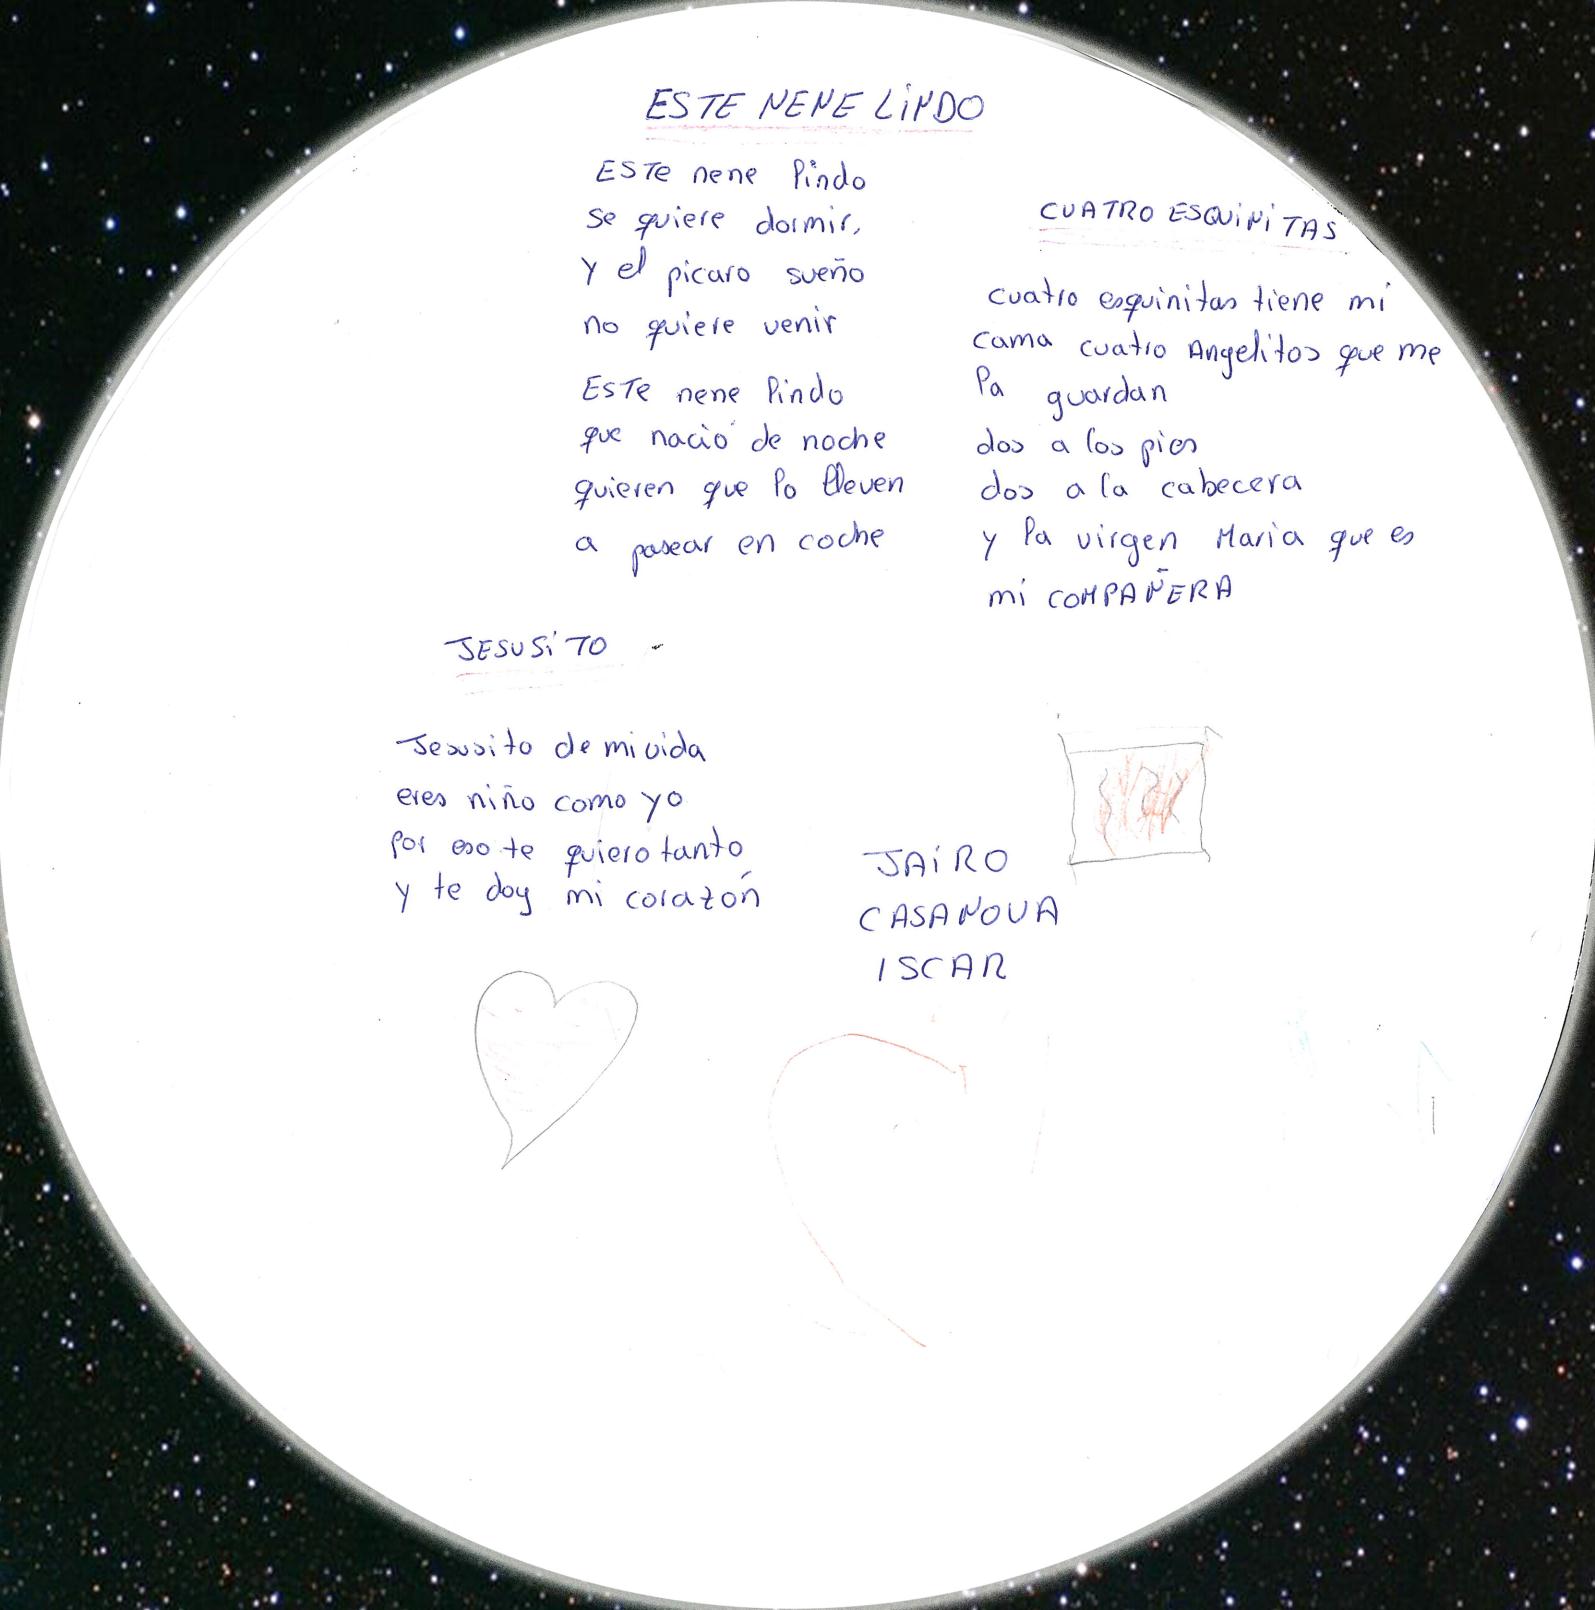 ESTE NENE LiNDO
ESTe nene lindo
se quiere dormir,
Y el picaro sueño
no quiere venir
ESTe nene lindo
que nació de noche
quieren que lo lleven
a pasear en coche
CUATRO ESQUiNiTAS
cuatro esquinitas tiene mi
cama cuatro Angelitos que me
la guardan
dos a los pies
dos a la cabecera
y la virgen Maria que es
mi COMPAÑERA
JESUSiTO
Jesusito de mi vida
eres niño como yo
por eso te quiero tanto
y te doy mi corazón
JAiRO
CASANOVA
ISCAR